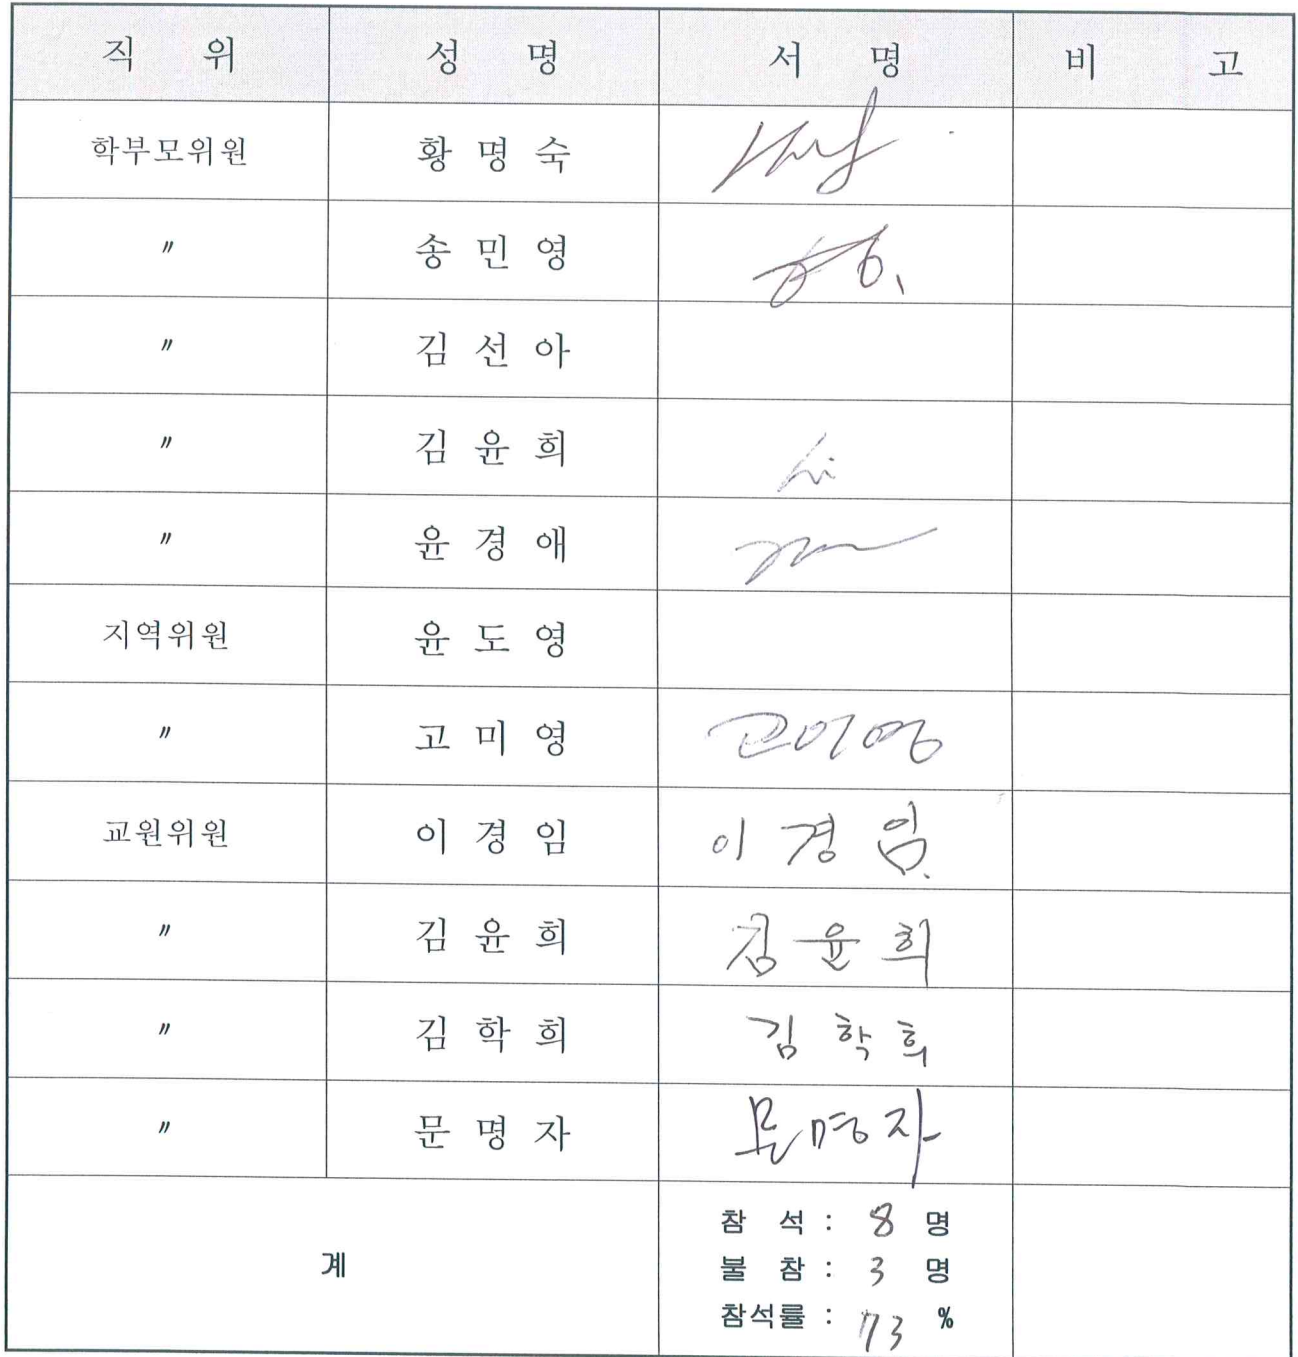 직 위 성 명 서 명 비 고
학부모위원 황 명 숙
〃 송 민 영
〃 김 선 아
〃 김 윤 희
〃 윤 경 애
지역위원 윤 도 영
〃 고 미 영 고미영
교원위원 이 경 임 이 경 임
〃 김 윤 희 김 윤 희
〃 김 학 희 김 학 희
〃 문 명 자 문명자
계
참 석 : 8 명
불 참 : 3 명
참석률 : 73 %